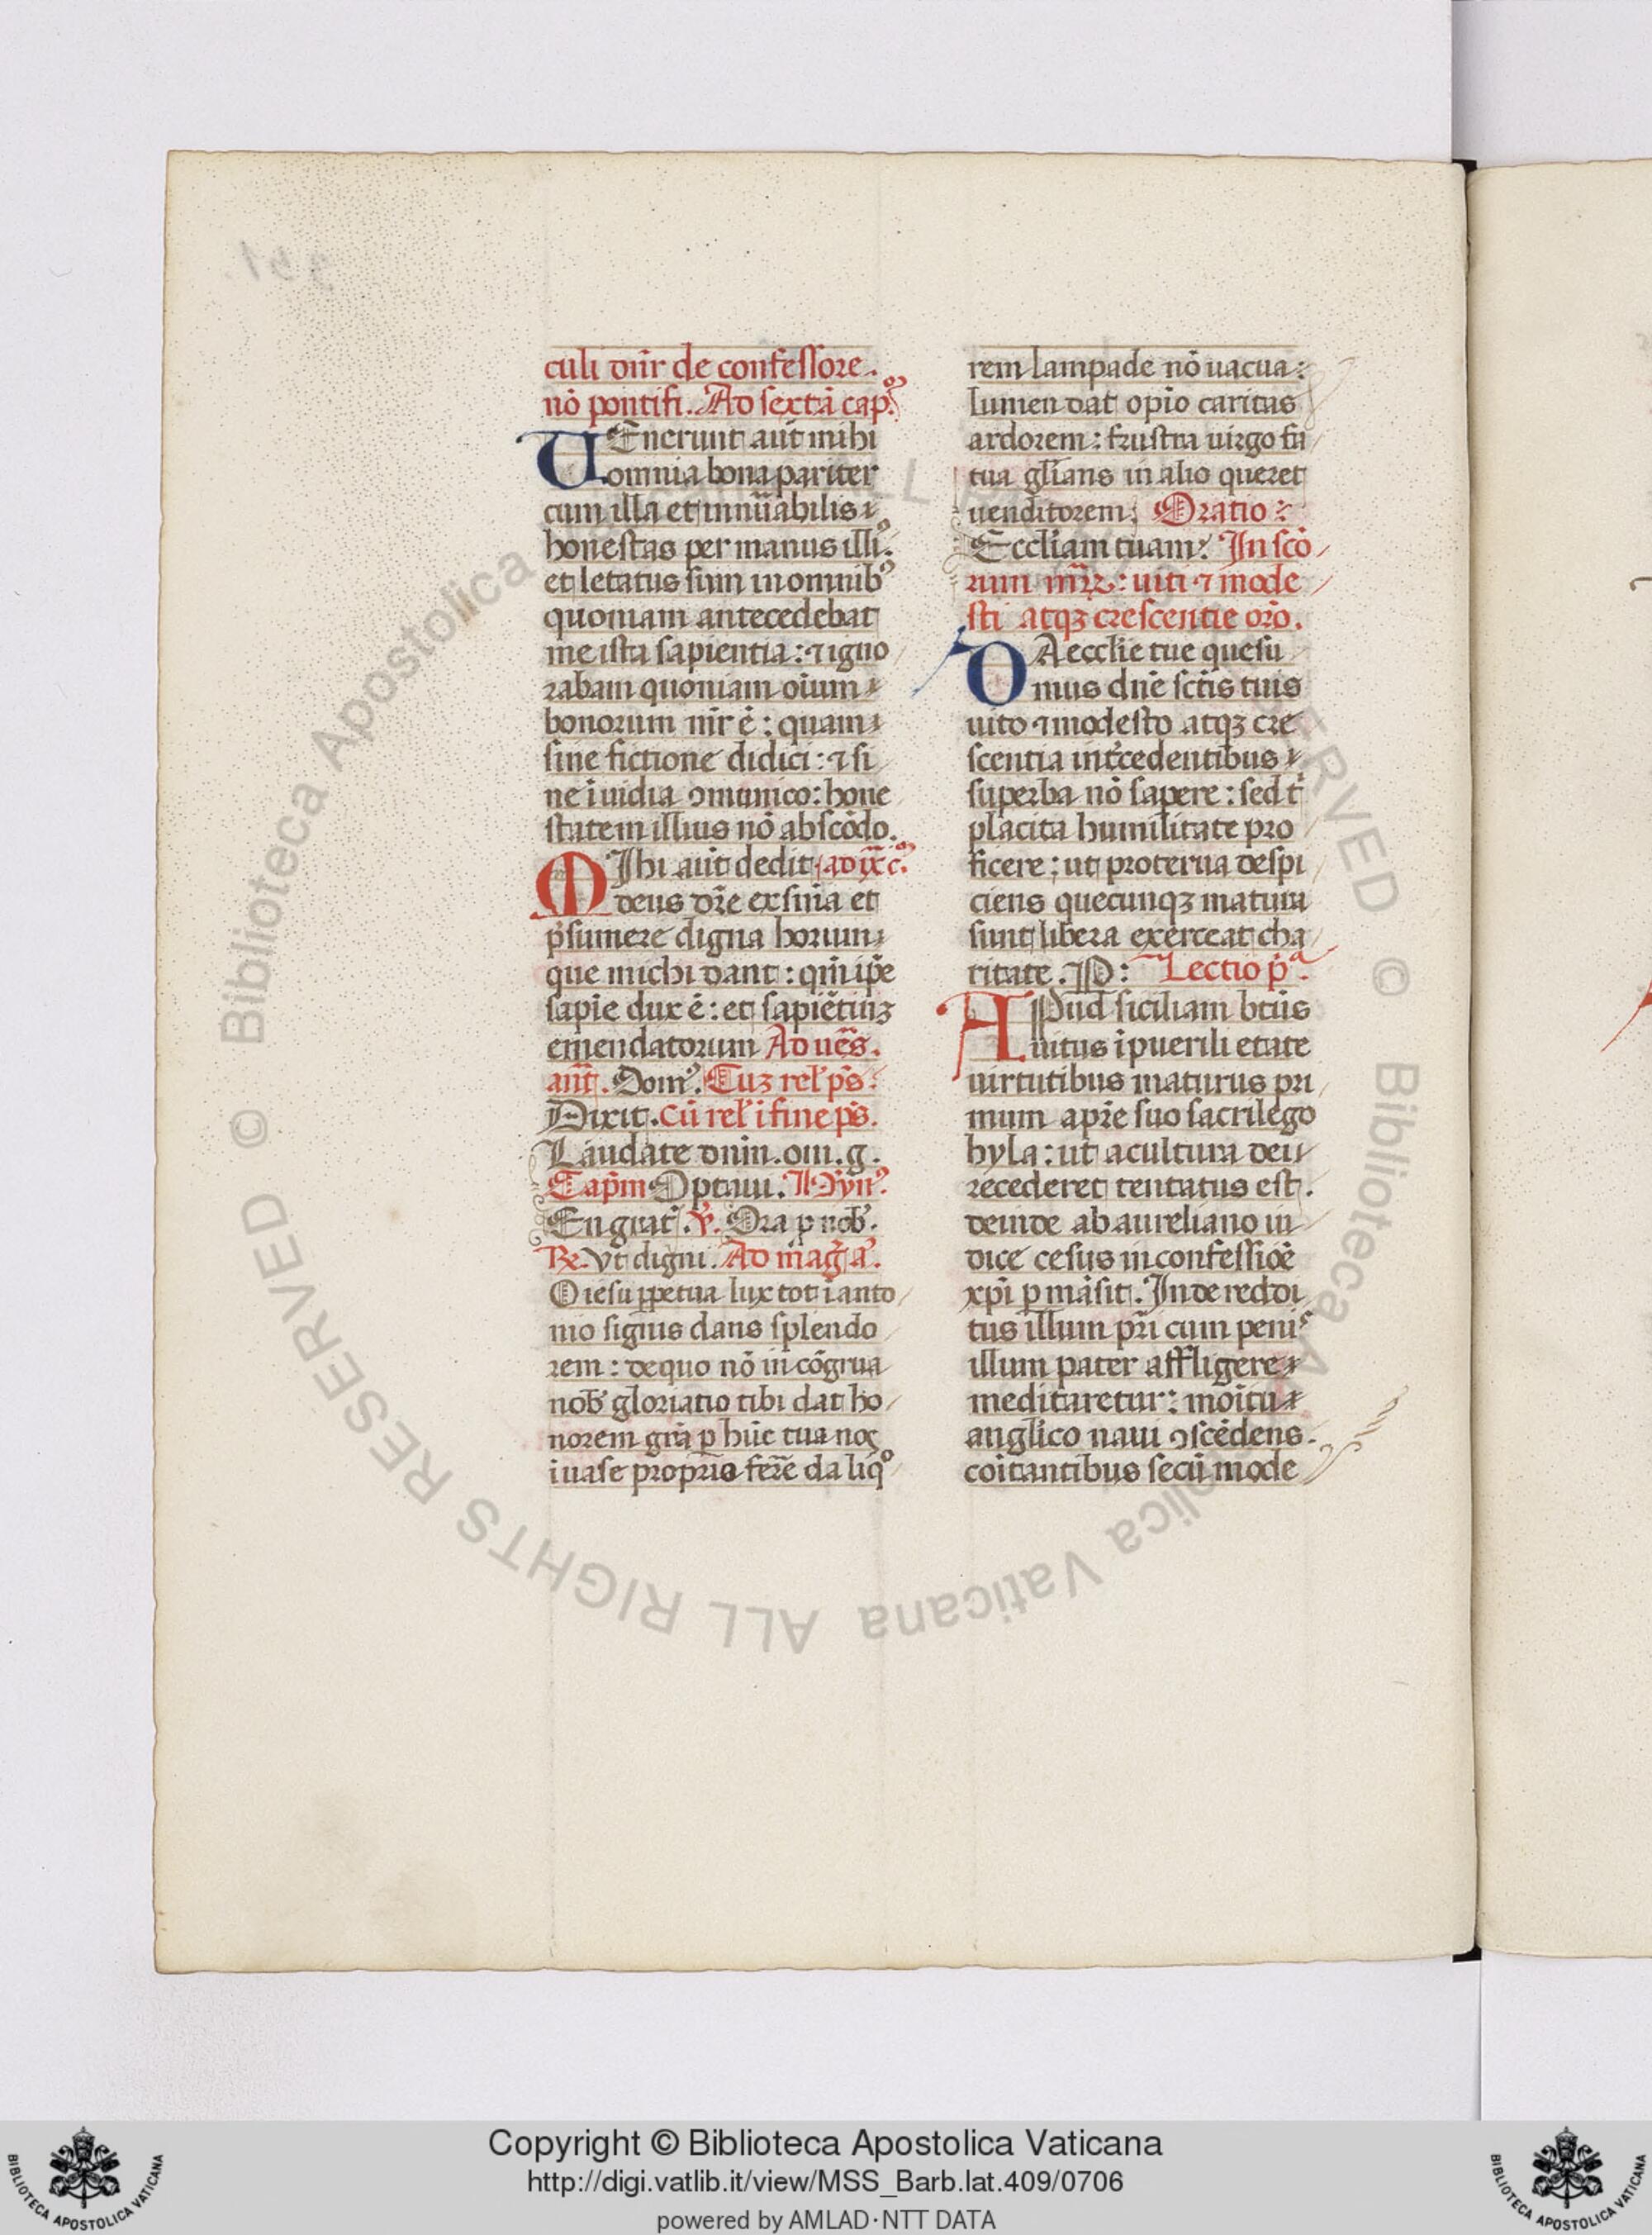 culi dn̄r de confessore.
nō pontifi. Ad sextā cap.º
UEnerunt aūt mihi
omnia bona pariter
cum illa et innūabilis
honestas per manus illiꝰ.
et letatus sum in omnibꝰ
quoniam antecedebat
me ista sapientia: ⁊ igno
rabam quoniam oīum
bonorum mr̄ ē: quam
sine fictione didici: ⁊ si
ne īuidia ꝯmunico: hone
statem illius nō abscōdo.
MIhi aūt dedit ad ix c.º
deus dr̄e ex sn̄ia et
p̄sumere digna horum
que michi dant: qm̄ ip̄e
sapīe dux ē: et sapiētiuꝫ
emendatorum Ad ue᷒s.
an̄t. Domꝰ. Cuꝫ relꝰ p̄s.
Dixit. Cū relꝰ ī fine p̄s.
Laudate dnm̄. om̄. g.
Capm̄ Optaui. Hynꝰ.
En grat. ℣. Ora ꝓ nob̄.
℞. Vt digni. Ad māg a.
O iesu ꝑpetua lux tot ī anto
nio signis dans splendo
rem: de quo nō in cōgrua
nob̄ gloriatio tibi dat ho
norem grā ꝑ hūc tua nos
iuase proprio ferre da liqº
rem lampade nō uacua:
lumen dat opīo caritas
ardorem: frustra uirgo fa
tua glīans in alio queret
uenditorem. Oratio:
Eccliam tuam: In scō
rum mr̄ꝝ: uiti ⁊ mode
sti atqꝫ crescentie orō.
DA ecclīe tue quesu
mus dnē sctīs tuis
uito ⁊ modesto atqꝫ cre
scentia int̄cedentibus
superba nō sapere: sed t
placita humilitate pro
ficere: ut proterua despi
ciens quecunqꝫ matura
sunt libera exerceat cha
ritate. P: Lectio pª.
APud siciliam btūs
uitus ī puerili etate
uirtutibus maturus pri
mum a pr̄e suo sacrilego
hyla: ut a cultura dei
recederet tentatus est.
deinde ab aureliano iu
dice cesus in confessiōe
xp̄i ꝑ māsit. Inde reddi
tus illum pr̄i cum penis
illum pater affligere
meditaretur: moītu
anglico naui ꝯscēdens.
coītantibus secū mode
Copyright © Biblioteca Apostolica Vaticana
http://digi.vatlib.it/view/MSS_Barb.lat.409/0706
powered by AMLAD·NTT DATA
BIBLIOTECA APOSTOLICA VATICANA
BIBLIOTECA APOSTOLICA VATICANA
© Biblioteca Apostolica Vaticana ALL RIGHTS RESERVED